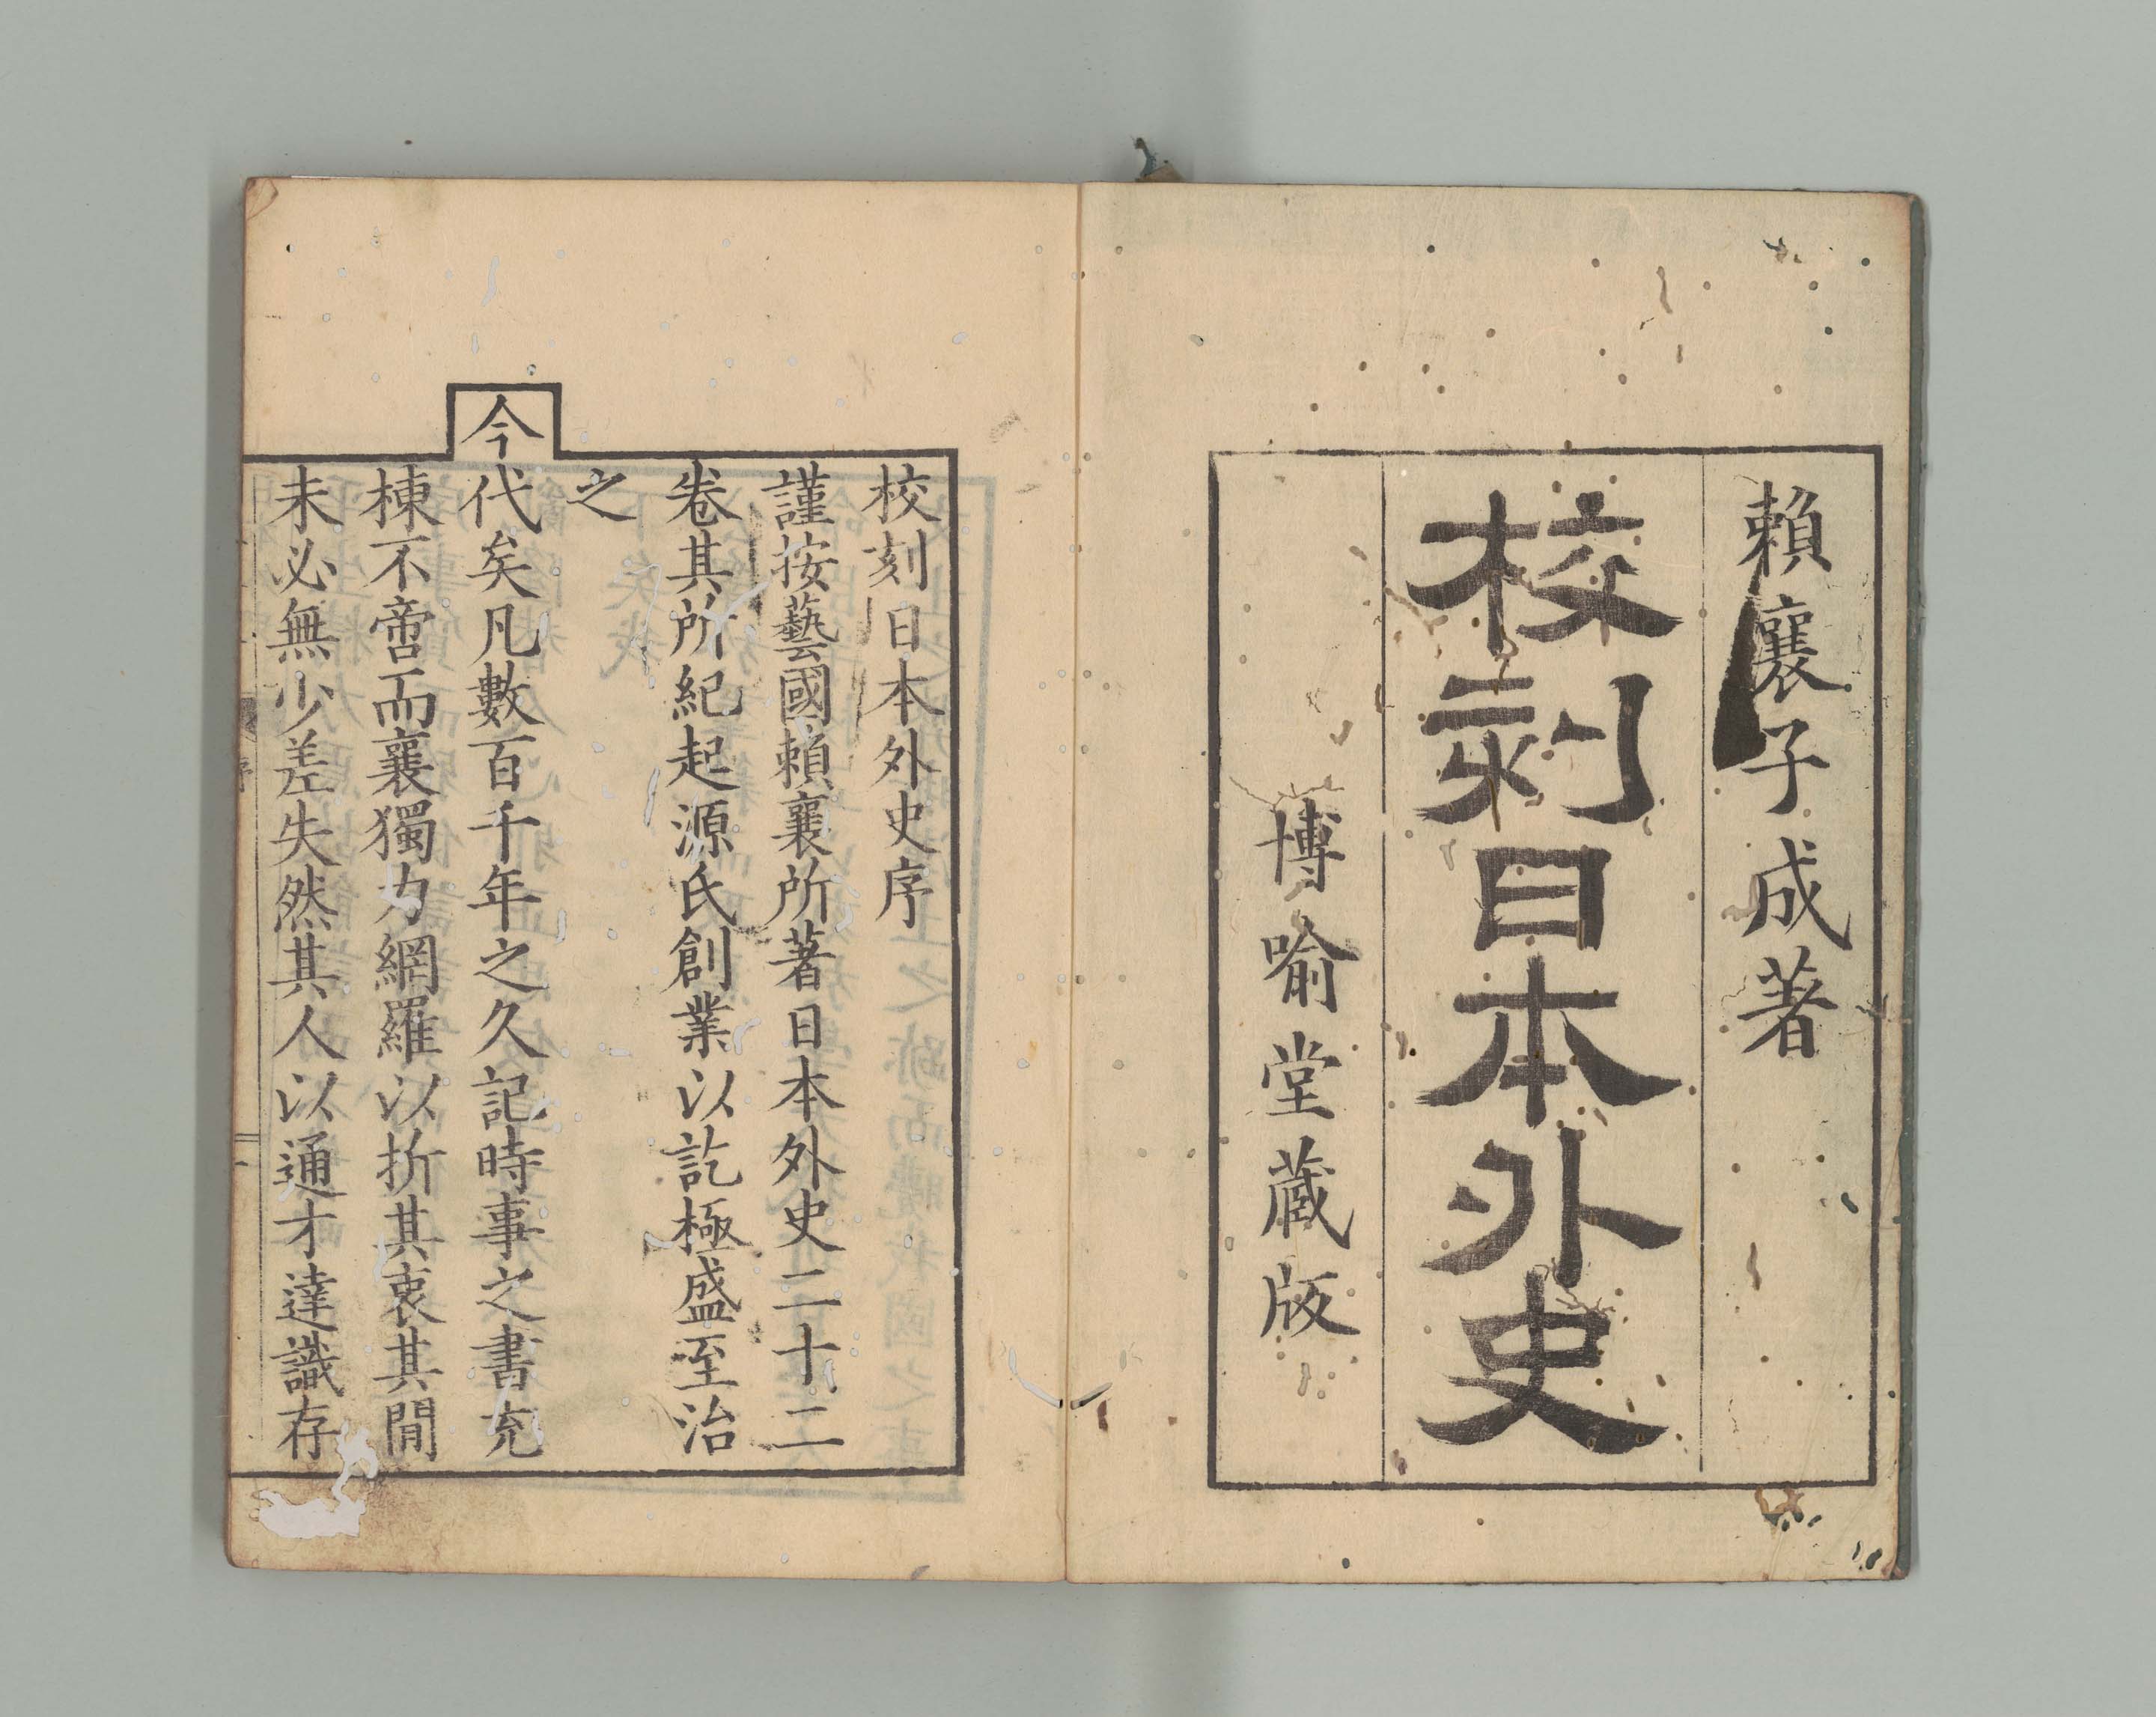 賴襄子成著
校刻日本外史
博喻堂蔵版
校刻日本外史序
謹按藝國賴襄所著日本外史二十二
卷其所紀起源氏創業以訖極盛至治
之
今代矣凡數百千年之久記時事之書充
棟不啻而襄獨力網羅以折其衷其閒
未必無少差失然其人以通才達識存